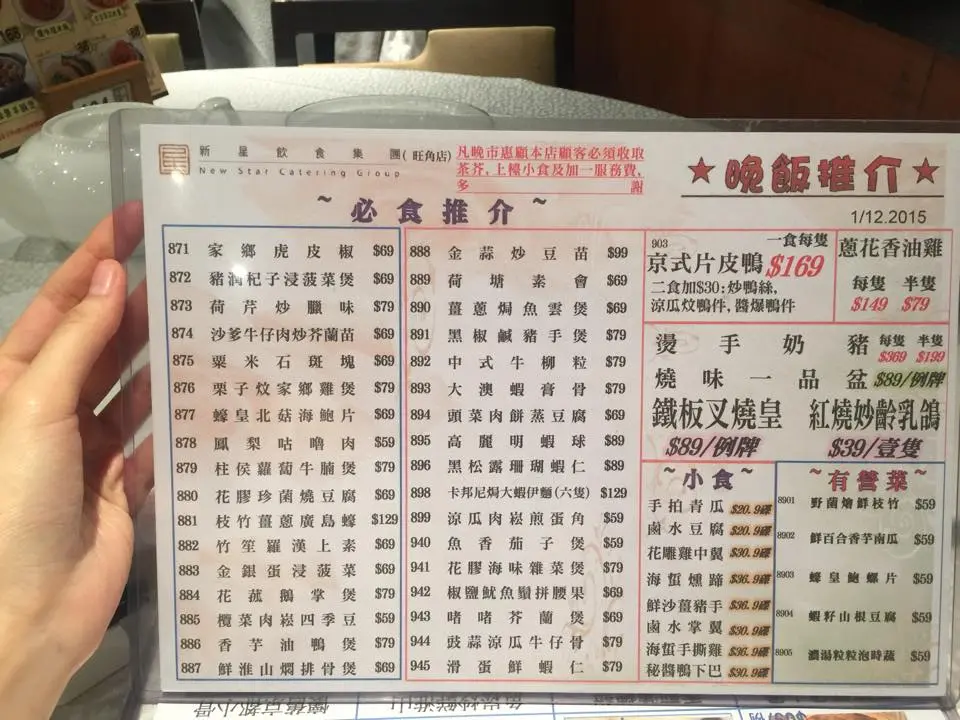 新星飲食集團(旺角店)
New Star Catering Group
凡晚市惠顧本店顧客必須收取
茶芥,上檯小食及加一服務費,
多謝
★晚飯推介★
1/12.2015
~必食推介~
871 家鄉虎皮椒 $69
872 豬潤杞子浸菠菜煲 $69
873 荷芹炒臘味 $79
874 沙爹牛仔肉炒芥蘭苗 $69
875 粟米石斑塊 $69
876 栗子炆家鄉雞煲 $79
877 蠔皇北菇海鮑片 $69
878 鳳梨咕嚕肉 $59
879 柱侯蘿蔔牛腩煲 $79
880 花膠珍菌燒豆腐 $69
881 枝竹薑蔥廣島蠔 $129
882 竹笙羅漢上素 $69
883 金銀蛋浸菠菜 $69
884 花菰鵝掌煲 $79
885 欖菜肉崧四季豆 $59
886 香芋油鴨煲 $79
887 鮮淮山燜排骨煲 $69
888 金蒜炒豆苗 $99
889 荷塘素會 $69
890 薑蔥焗魚雲煲 $69
891 黑椒鹹豬手煲 $79
892 中式牛柳粒 $79
893 大澳蝦膏骨 $79
894 頭菜肉餅蒸豆腐 $69
895 高麗明蝦球 $89
896 黑松露珊瑚蝦仁 $89
898 卡邦尼焗大蝦伊麵(六隻) $129
899 涼瓜肉崧煎蛋角 $59
940 魚香茄子煲 $59
941 花膠海味雜菜煲 $79
942 椒鹽魷魚鬚拼腰果 $69
943 啫啫芥蘭煲 $69
944 豉蒜涼瓜牛仔骨 $79
945 滑蛋鮮蝦仁 $79
903 一食每隻
京式片皮鴨 $169
二食加$30:炒鴨絲,
涼瓜炆鴨件,醬爆鴨件
蔥花香油雞
每隻 半隻
$149 $79
燙手奶豬 每隻 半隻
$369 $199
燒味一品盆 $89/例牌
鐵板叉燒皇 紅燒妙齡乳鴿
$89/例牌 $39/壹隻
~小食~
手拍青瓜 $20.9碟
鹵水豆腐 $20.9碟
花雕雞中翼 $30.9碟
海蜇燻蹄 $36.9碟
鮮沙薑豬手 $36.9碟
鹵水掌翼 $30.9碟
海蜇手撕雞 $36.9碟
秘醬鴨下巴 $30.9碟
~有營菜~
8901 野菌燴鮮枝竹 $59
8902 鮮百合香芋南瓜 $59
8903 蠔皇鮑螺片 $59
8904 蝦籽山根豆腐 $59
8905 濃湯粒粒泡時蔬 $59